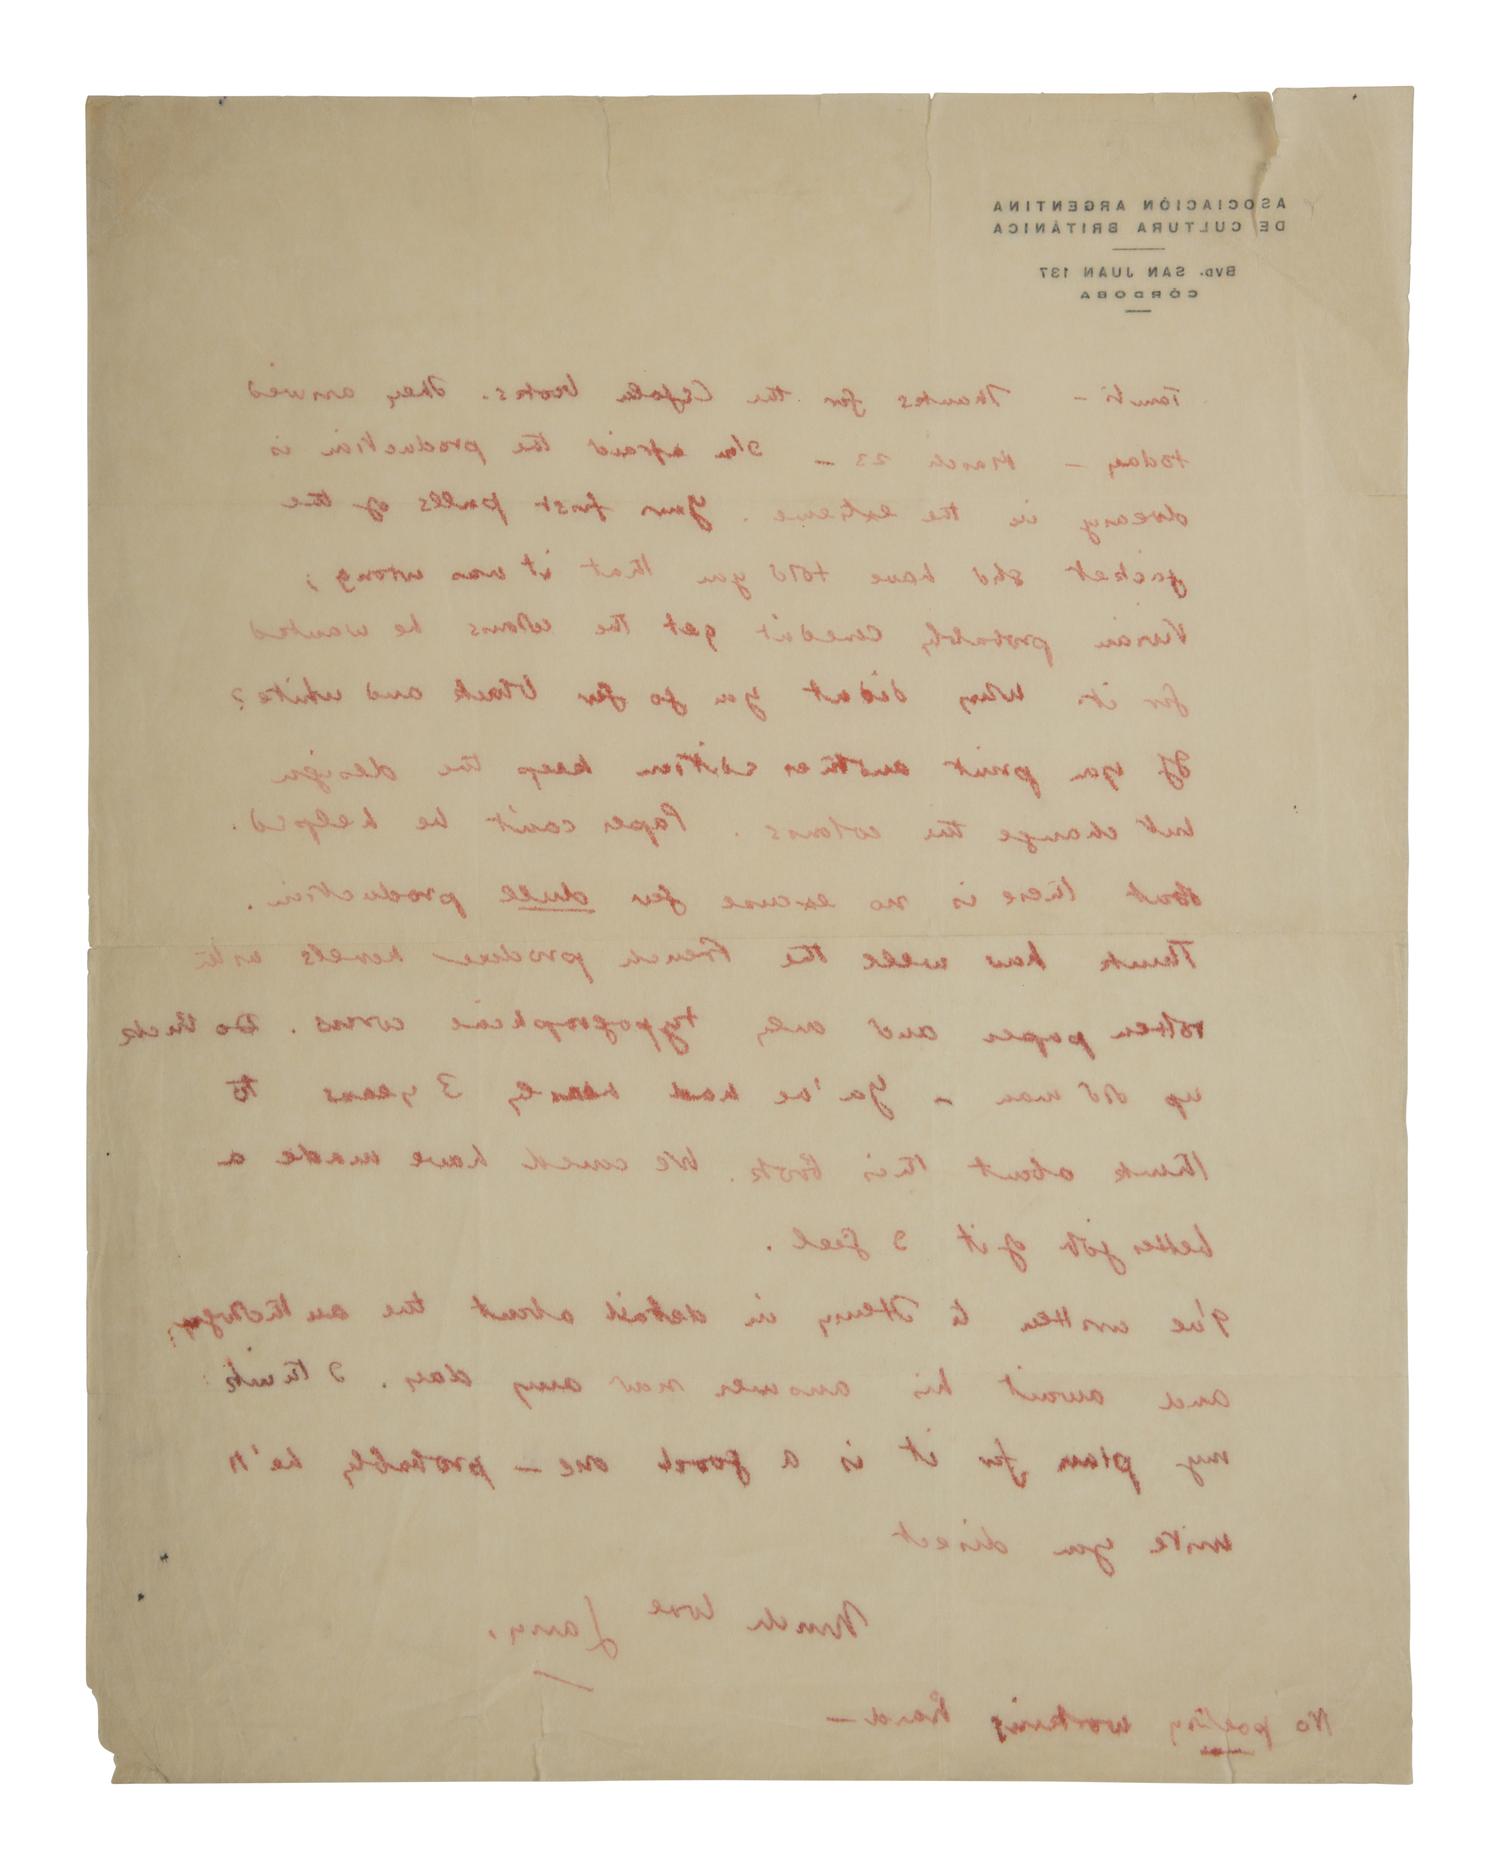 ASOCIACIÓN ARGENTINA
DE CULTURA BRITÁNICA
BVD. SAN JUAN 137
CÓRDOBA
Tambi - Thanks for the Cefalu books. They arrived
today - March 23 - I'm afraid the production is
dreary in the extreme. Your first pulls of the
jacket shd have told you that it was wrong;
Vivian probably couldn't get the colours he wanted
for it. Why didnt you go for black and white?
If you print another edition keep the design
but change the colours. Paper can't be helped.
but there is no excuse for dull production.
Think how well the French produce novels with
rotten paper and only typographical covers. Do buck
up old man - You've had nearly 3 years to
think about this book. We could have made a
better job of it I feel.
I've written to Henry in detail about the anthology,
and await his answer now any day. I think
my plan for it is a good one - probably he'll
write you direct
Much love Larry.
No poetry working hard -